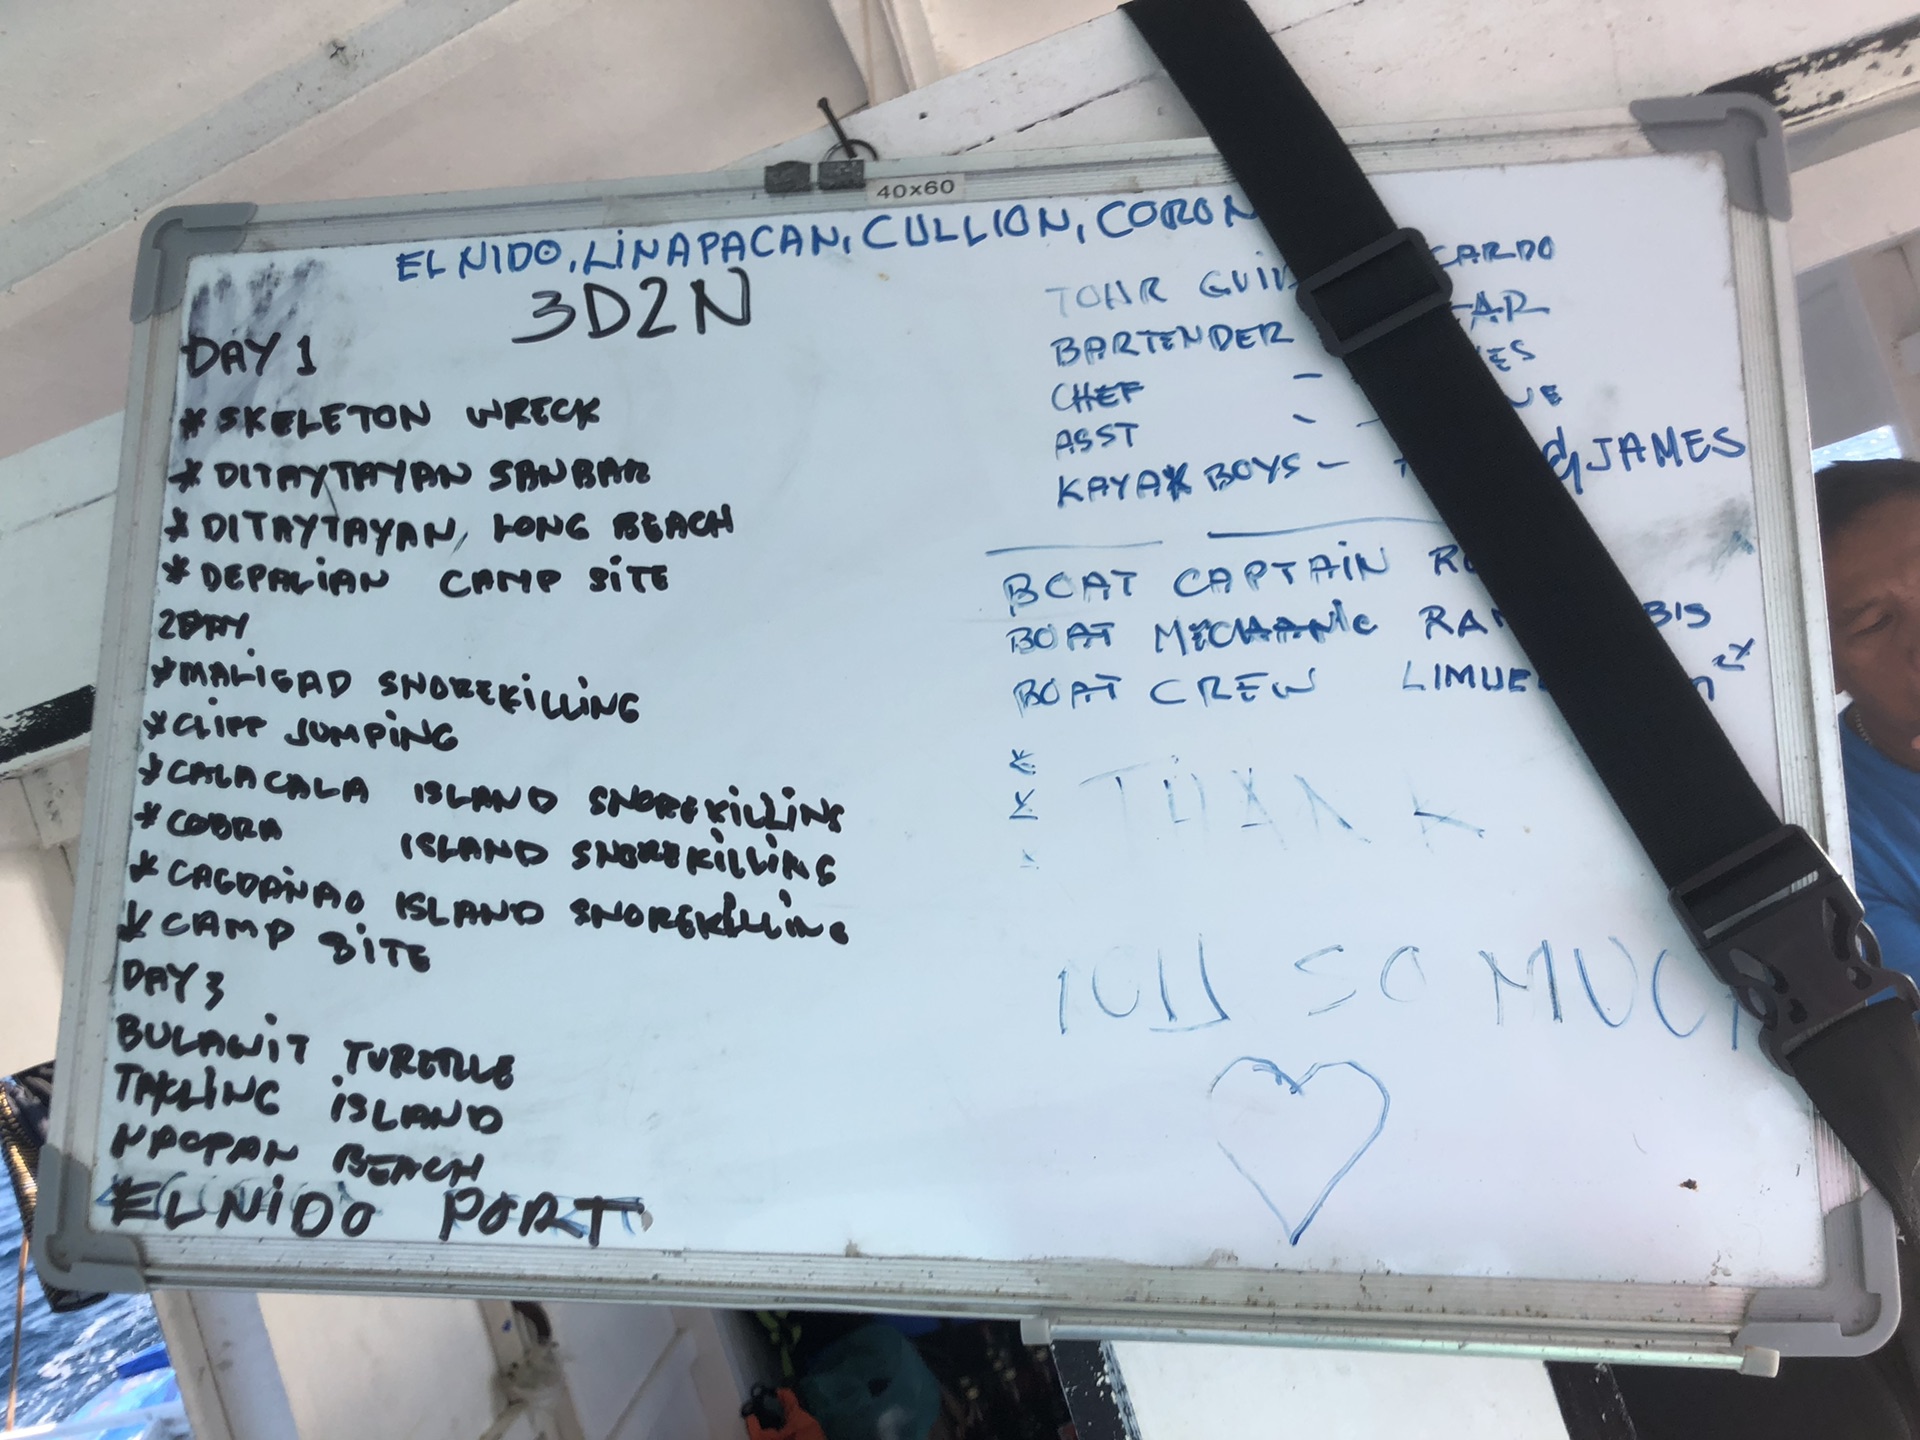 40x60
EL NIDO, LINAPACAN, CULLION, CORON
3D2N
DAY 1
* SKELETON WRECK
* DITAYTAYAN SANBAR
* DITAYTAYAN, LONG BEACH
* DEPALIAN CAMP SITE
2DAY
* MALIGAD SNOREKILLING
* CLIFF JUMPING
* CALACALA ISLAND SNOREKILLING
* COBRA ISLAND SNOREKILLING
* CAGDANAO ISLAND SNOREKILLING
* CAMP SITE
DAY 3
BULAWIT TURETLLE
TAKLING ISLAND
NACPAN BEACH
*EL NIDO PORT
TOUR
BARTENDER
CHEF -
ASST -
KAYAK BOYS - JAMES
BOAT CAPTAIN
BOAT MECHANIC
BOAT CREW
THANK
YOU SO MUCH